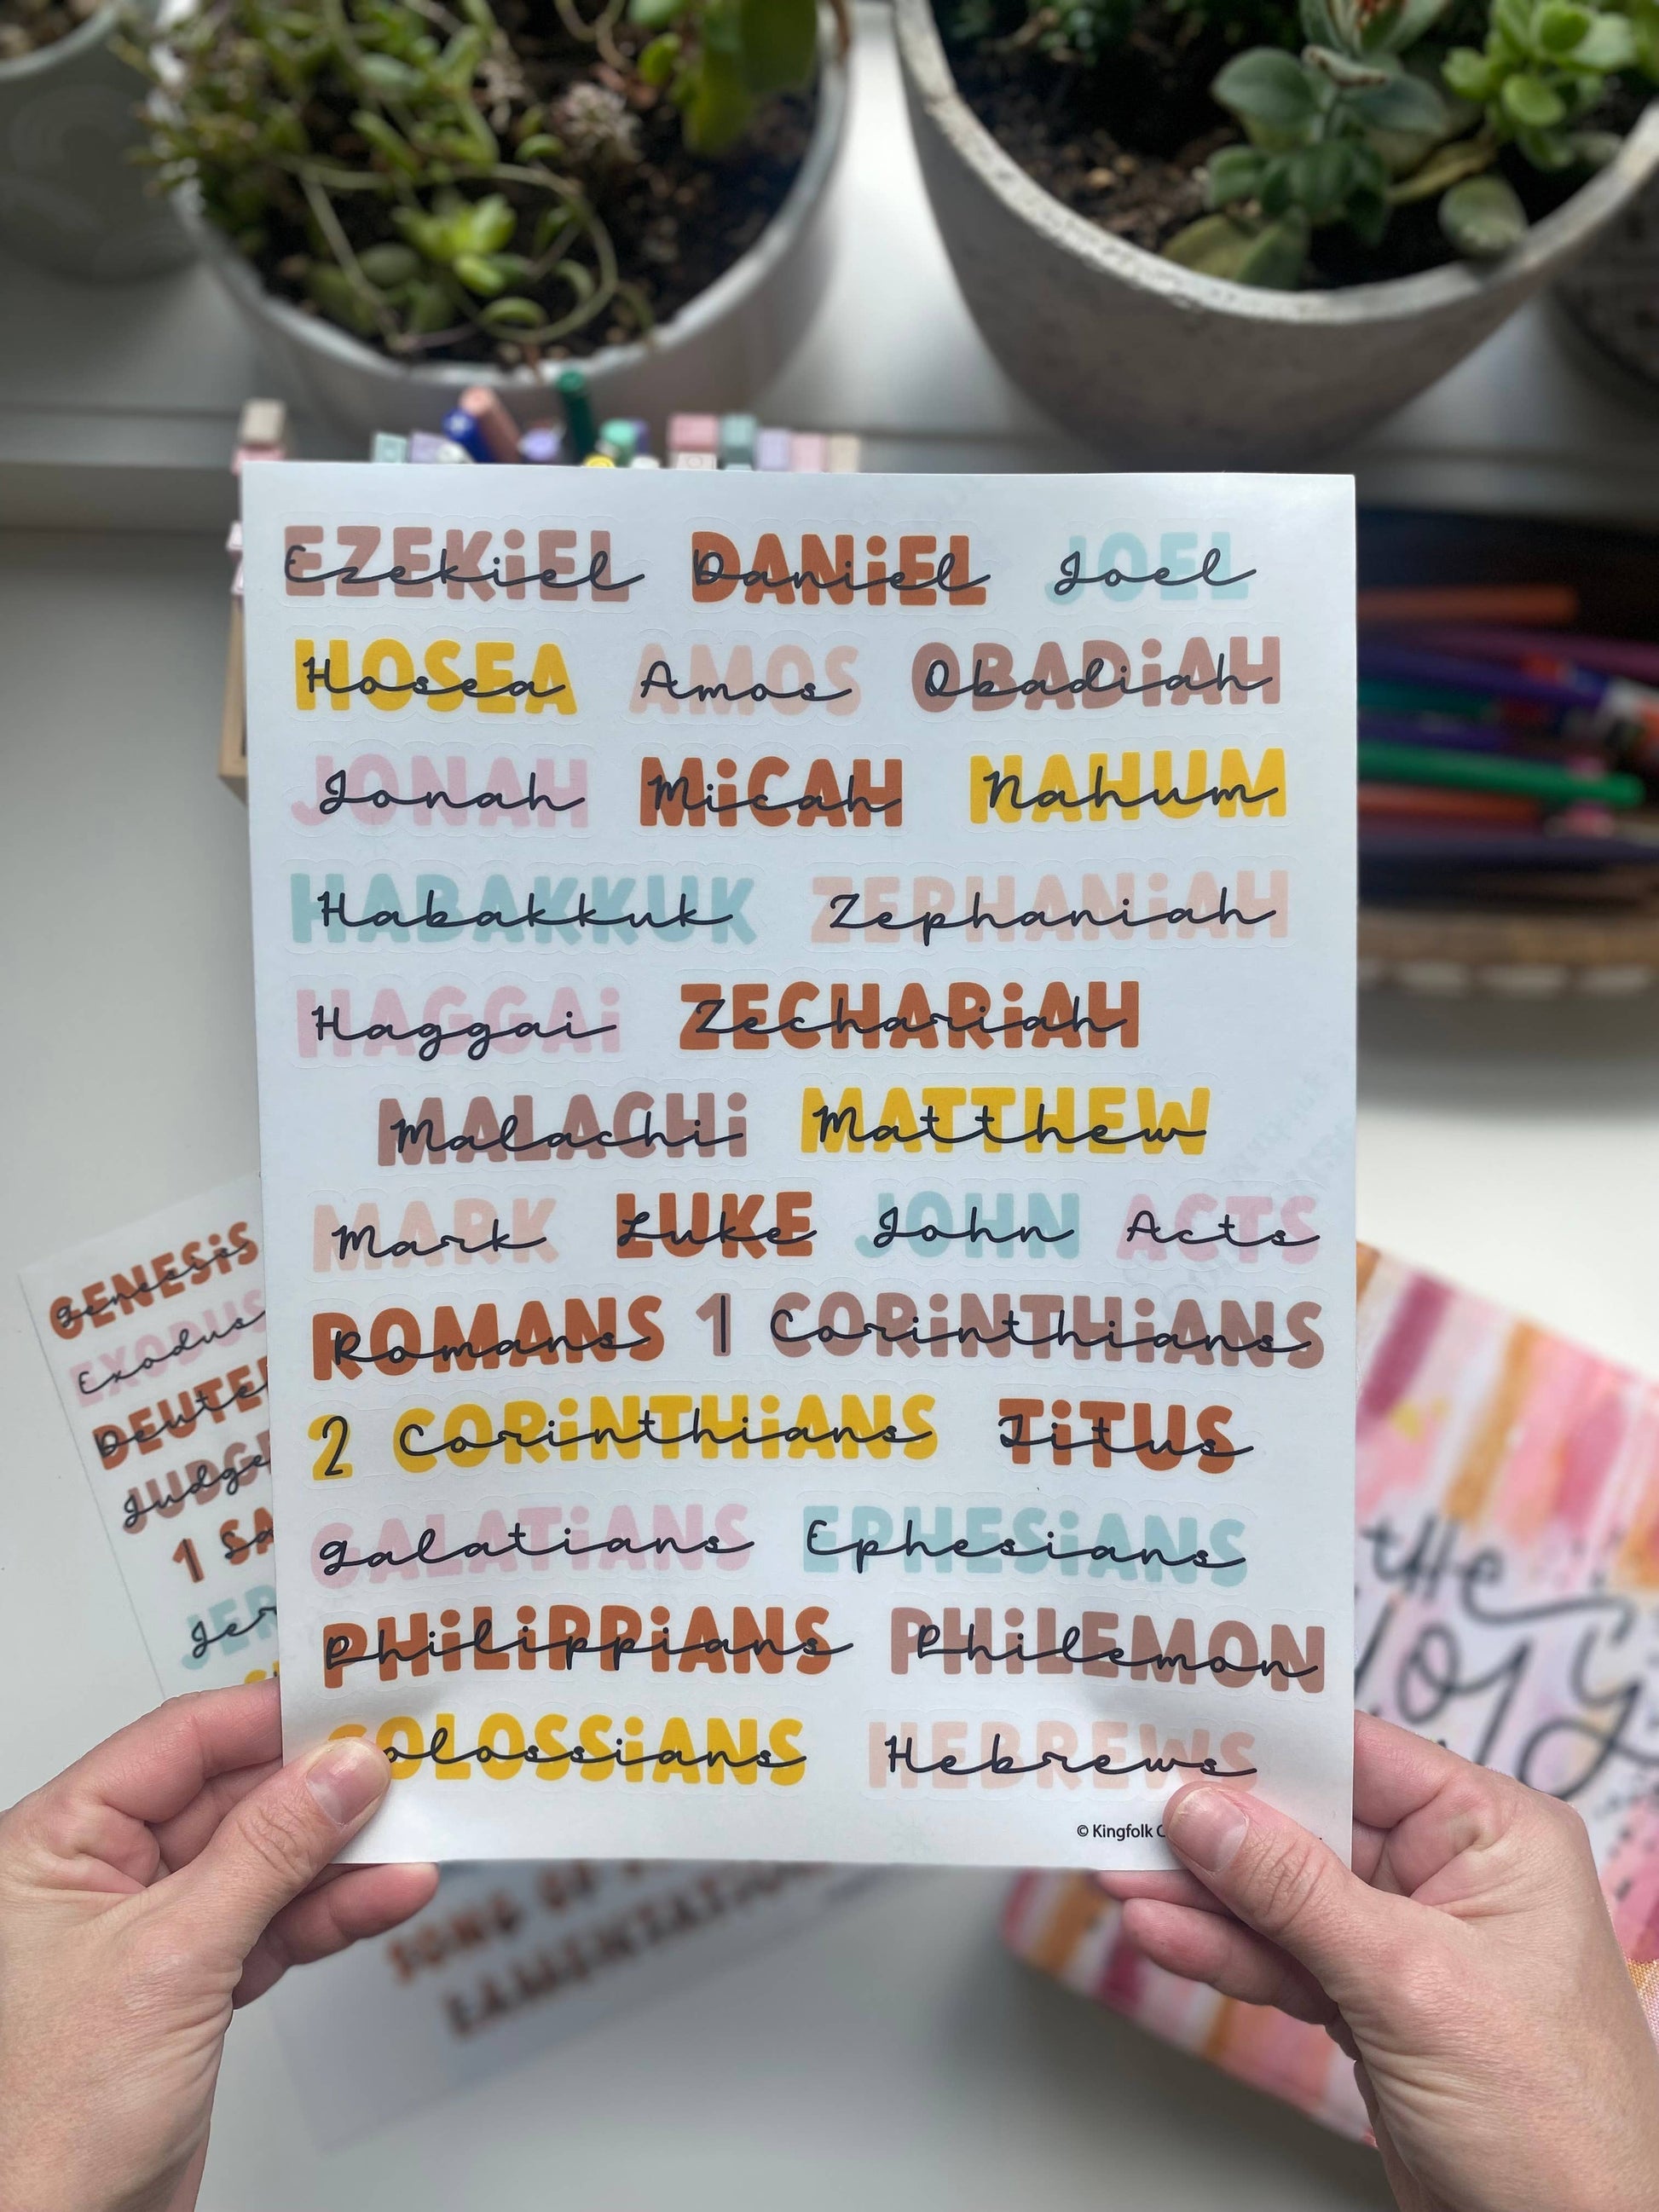 EZEKiEL Ezekiel DANiEL Daniel JOEL Joel
HOSEA Hosea AMOS Amos OBADiAH Obadiah
JONAH Jonah MiCAH Micah NAHUM Nahum
HABAKKUK Habakkuk ZEPHANiAH Zephaniah
HAGGAi Haggai ZECHARiAH Zechariah
MALACHi Malachi MATTHEW Matthew
MARK Mark LUKE Luke JOHN John ACTS Acts
ROMANS Romans 1 CORiNTHiANS Corinthians
2 CORiNTHiANS Corinthians TiTUS Titus
GALATiANS galatians EPHESiANS Ephesians
PHiLiPPiANS Philippians PHiLEMON Philemon
COLOSSiANS olossians HEBREWS Hebrews
© Kingfolk
GENESiS genesis
EXODUS Exodus
DEUTE Deute
JUDGE Judge
1 Sa
JER Jer
SONG OF
LAMENTATION
the